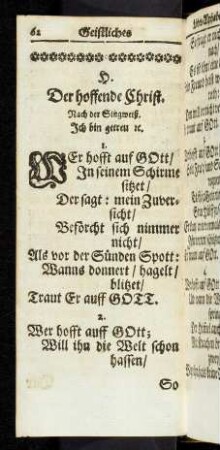 62 Geistliches
H.
Der hoffende Christ.
Nach der Singweiß.
Ich bin getreu ꝛc.
1.
WEr hofft auf GOtt/
In seinem Schirme
sitzet/
Der sagt: mein Zuver-
sicht/
Beförcht sich nimmer
nicht/
Als vor der Sünden Spott:
Wanns donnert/ hagelt/
blitzet/
Traut Er auff GOTT.
2.
Wer hofft auff GOtt;
Will ihn die Welt schon
hassen/
So